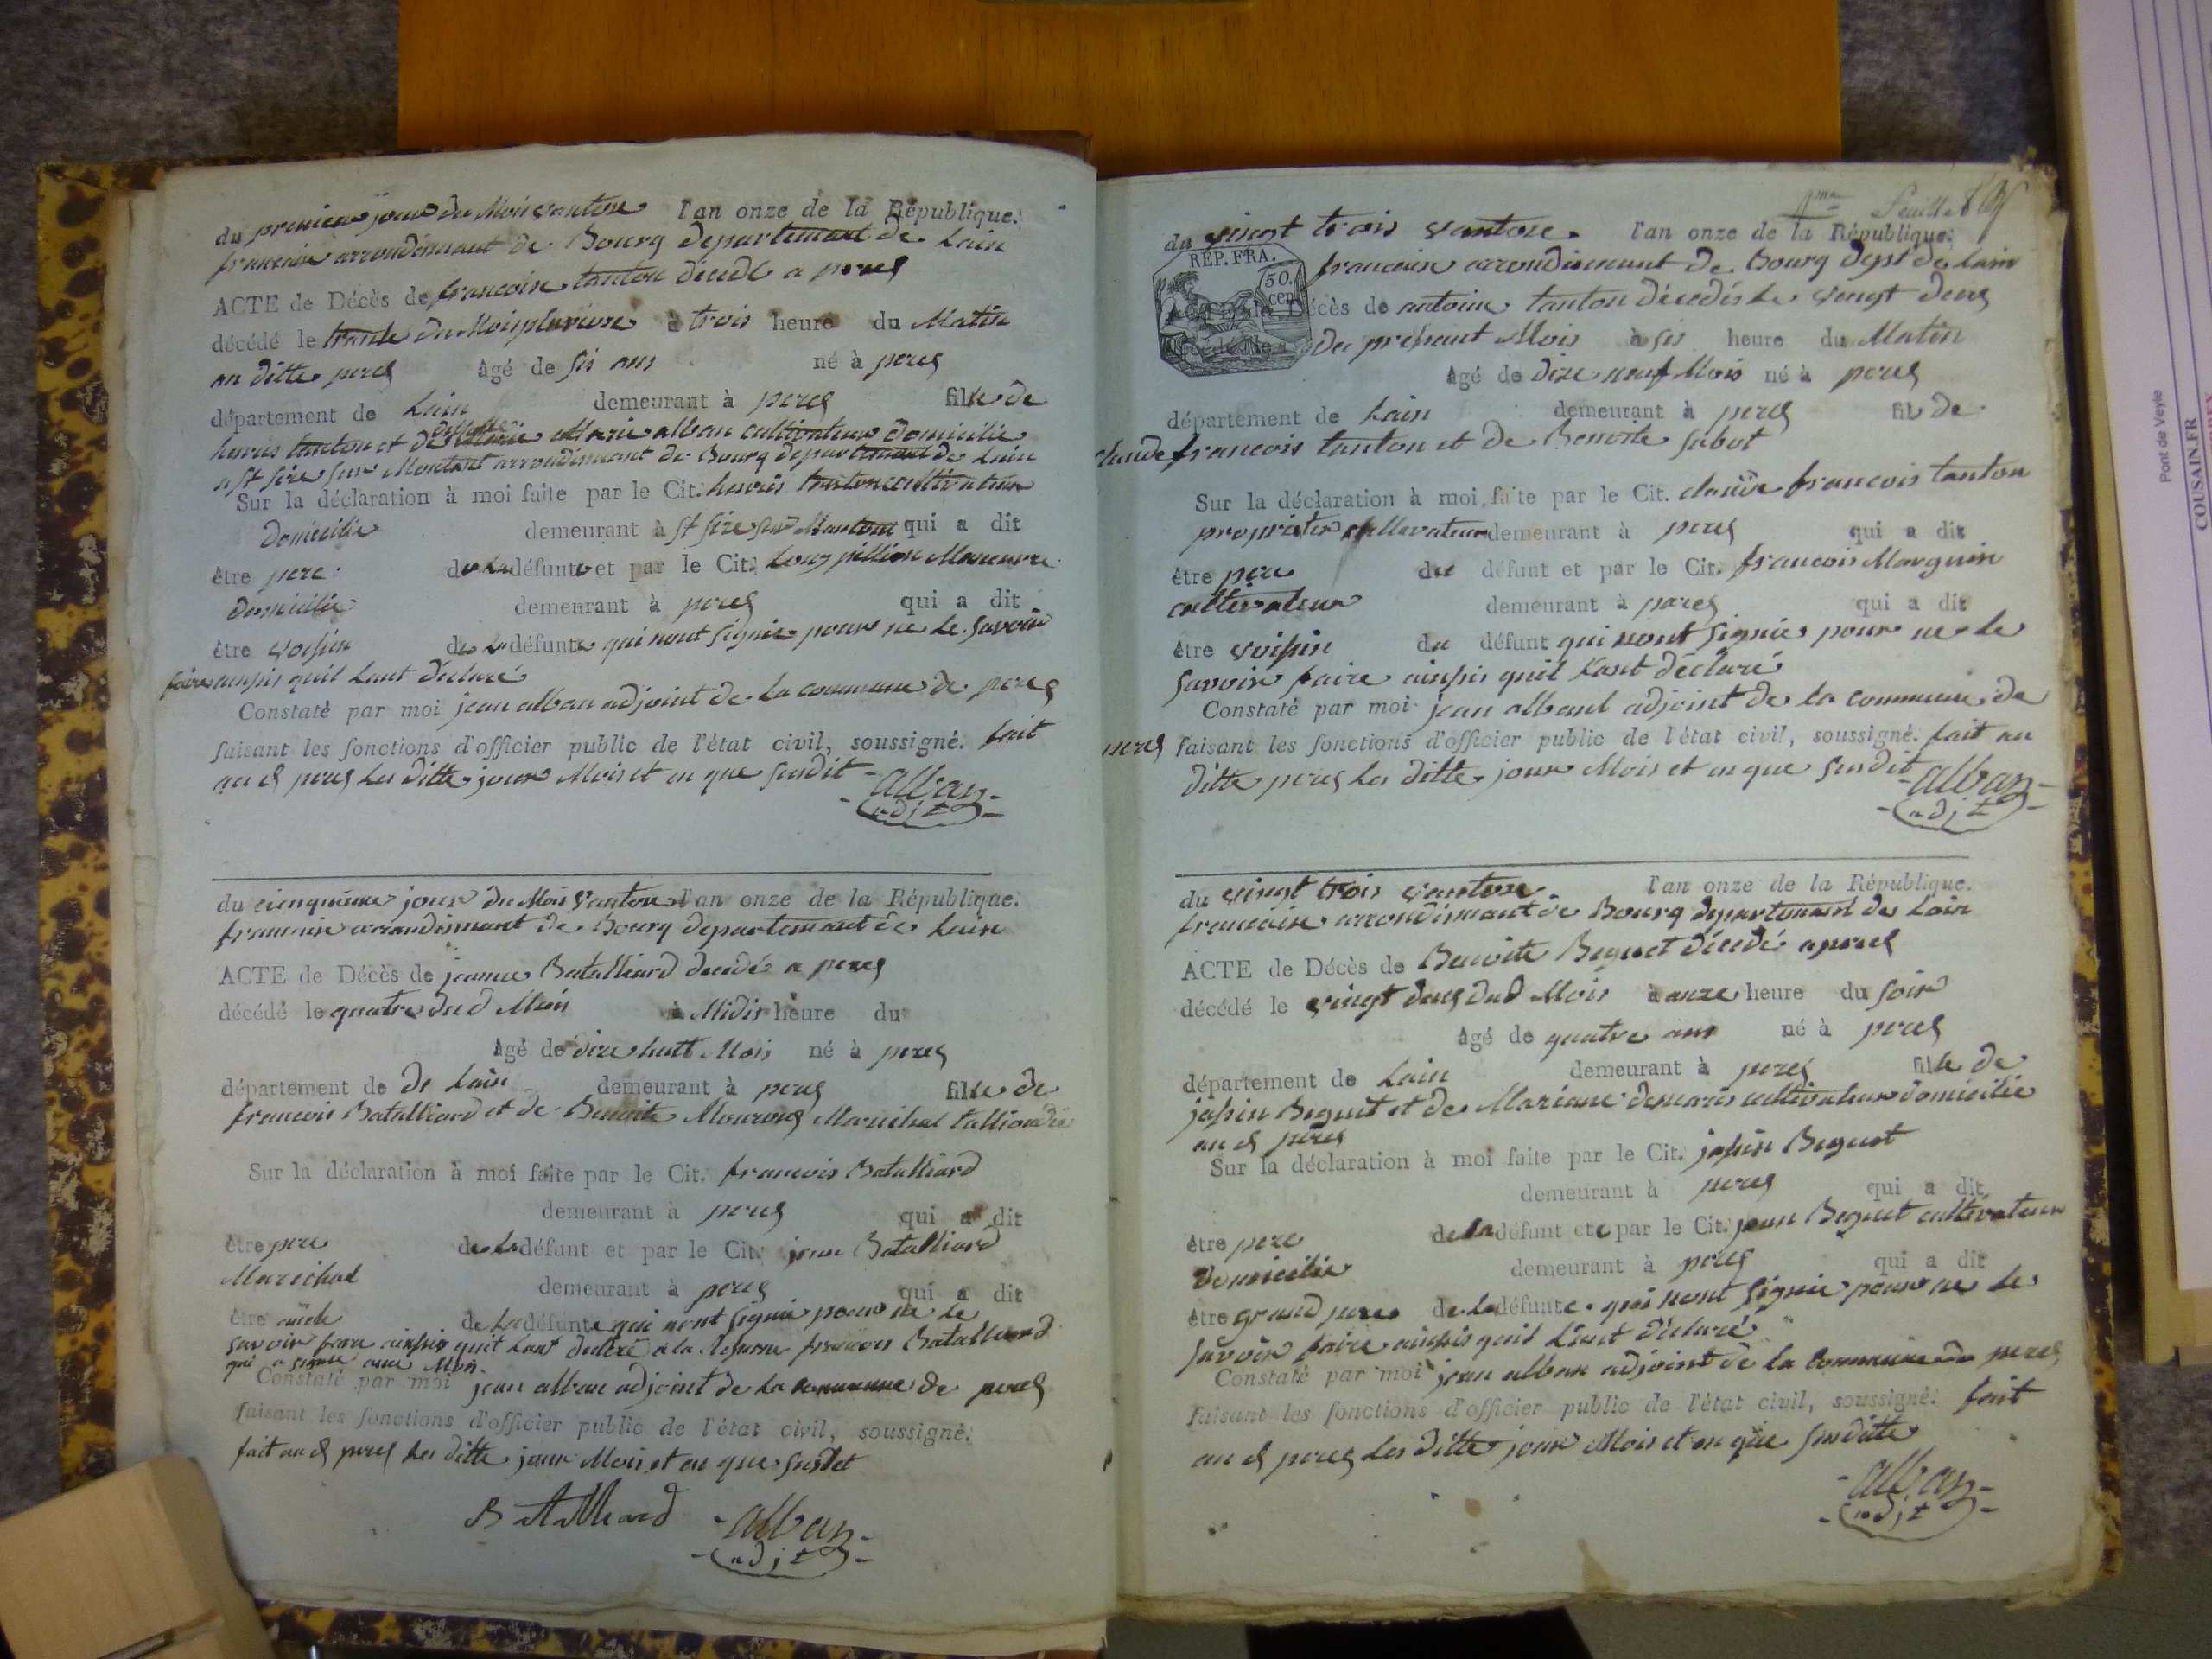 du premier jour du Mois vantose l'an onze de la République.
francaise arrondismant de Bourg departemant de Lain
ACTE de Décès de francoise tanton décédé a perex
décédé le trante du Mois pluviose à trois heure du Matin
au ditte perex âgé de sis ans né à perex
département de Lain demeurant à perex fille de
henris tanton et de Marie alban cultivateur domicilié
a st sire sur Montont arrondismant de Bourg departemant de Lain
Sur la déclaration à moi faite par le Cit. henris tanton cultivateur
domicilié demeurant à st sire sur Montont qui a dit
être pere de la défunte et par le Cit. Maneuvre
domicilié demeurant à perex qui a dit
être voisin de la défunte qui nont signié pour ne le savoir
faire ainsis quil Lont déclaré
Constaté par moi jean alban adjoint de la commune de perex
faisant les fonctions d'officier public de l'état civil, soussigné. fait
au d perex les ditte jour Mois et an que susdit
alban
adjt
du cienquieme jour du Mois vantose l'an onze de la République.
francaise arrondismant de Bourg departemant de Lain
ACTE de Décès de jeanne Batalliard decedé a perex
décédé le quatre dud Mois à Midis heure du
âgé de dixe huit Mois né à perex
département de de Lain demeurant à perex fille de
francois Batalliard et de Benoite Marechal
Sur la déclaration à moi faite par le Cit. francois Batalliard
demeurant à perex qui a dit
être pere de la défunt et par le Cit. jean Batalliard
Marechal demeurant à perex qui a dit
être de la défunte qui nont signié pour ne le
savoir faire ainsis quil Lont declaré a la francois Batalliard
qui a signé avec Moi.
Constaté par moi jean alban adjoint de la commune de perex
faisant les fonctions d'officier public de l'état civil, soussigné.
fait au d perex les ditte jour Mois et an que susdit
Batalliard alban
adjt
feuillet
du vingt trois vantose. l'an onze de la République.
REP. FRA.
50.
cen.
francaise arrondismant de Bourg dept de Lain
ACTE de Décès de antoine tanton décedés le vingt deux
décédé le du présant Mois à sis heure du Matin
âgé de dixe neuf Mois né à perex
département de Lain demeurant à perex fils de
claude francois tanton et de Benoite sabot
Sur la déclaration à moi faite par le Cit. claude francois tanton
demeurant à perex qui a dit
être pere du défunt et par le Cit. francois Marguin
cultivateur demeurant à perex qui a dit
être voisin du défunt qui nont signiés pour ne le
savoir faire ainsis quil Lont déclaré
Constaté par moi jean alband adjoint de la commune de
perex faisant les fonctions d'officier public de l'état civil, soussigné. fait au
ditte perex les ditte jour Mois et an que susdit
alban
adjt
du vingt trois vantose. l'an onze de la République.
francaise arrondismant de Bourg departemant de Lain
ACTE de Décès de Benoite Beguet décedé a perex
décédé le vingt deux dud Mois à onze heure du soir
âgé de quatre ans né à perex
département de Lain demeurant à perex fille de
jospin Beguet et de Mariane demaris cultivateur domicilié
au d perex
Sur la déclaration à moi faite par le Cit. jospin Beguet
demeurant à perex qui a dit
être pere de la défunt ete par le Cit. jean Beguet cultivateur
domicilié demeurant à perex qui a dit
être grand pere de la défunte qui nont signié pour ne le
savoir faire ainsis quil Lont déclaré
Constaté par moi jean alban adjoint de la commune de perex
faisant les fonctions d'officier public de l'état civil, soussigné. fait
au d perex les ditte jour Mois et an que susditte
alban
adjt
Pont de Veyle
COUSAIN.FR